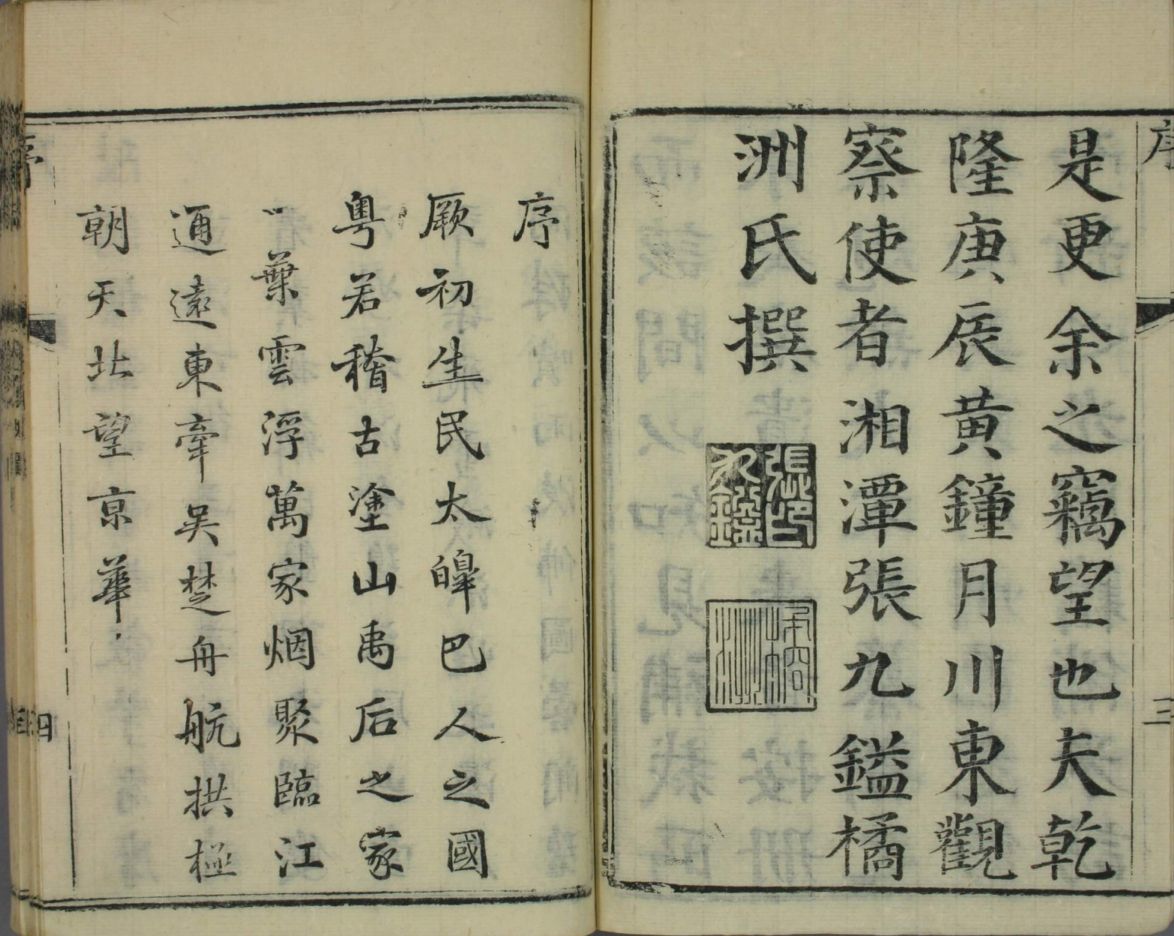 序
三
是更余之竊望也夫乾
隆庚辰黃鐘月川東觀
察使者湘潭張九鎰橘
洲氏撰
張印九鎰
橘洲
序
厥初生民太皥巴人之國
粤若稽古塗山禹后之家
一葉雲浮萬家烟聚臨江
通遠東牽吳楚舟航拱極
朝天北望京華
序
四